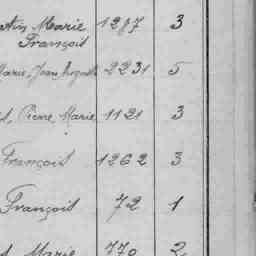 Marie 1287 3
François
Marie, Jean Auguste 2231 5
Pierre Marie 1121 3
François 1262 3
François 72 1
Marie 770 2